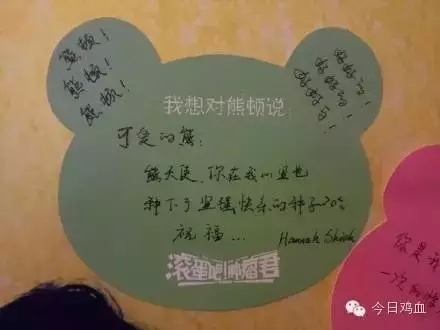 熊顿！
熊顿！
熊顿！
好好的！
好好的！
好好的！
我想对熊顿说
可爱的熊：
熊天使，你在我心里也
种下了坚强快乐的种子
祝福...
Hannah
滚蛋吧!肿瘤君
你是我
一次
今日鸡血